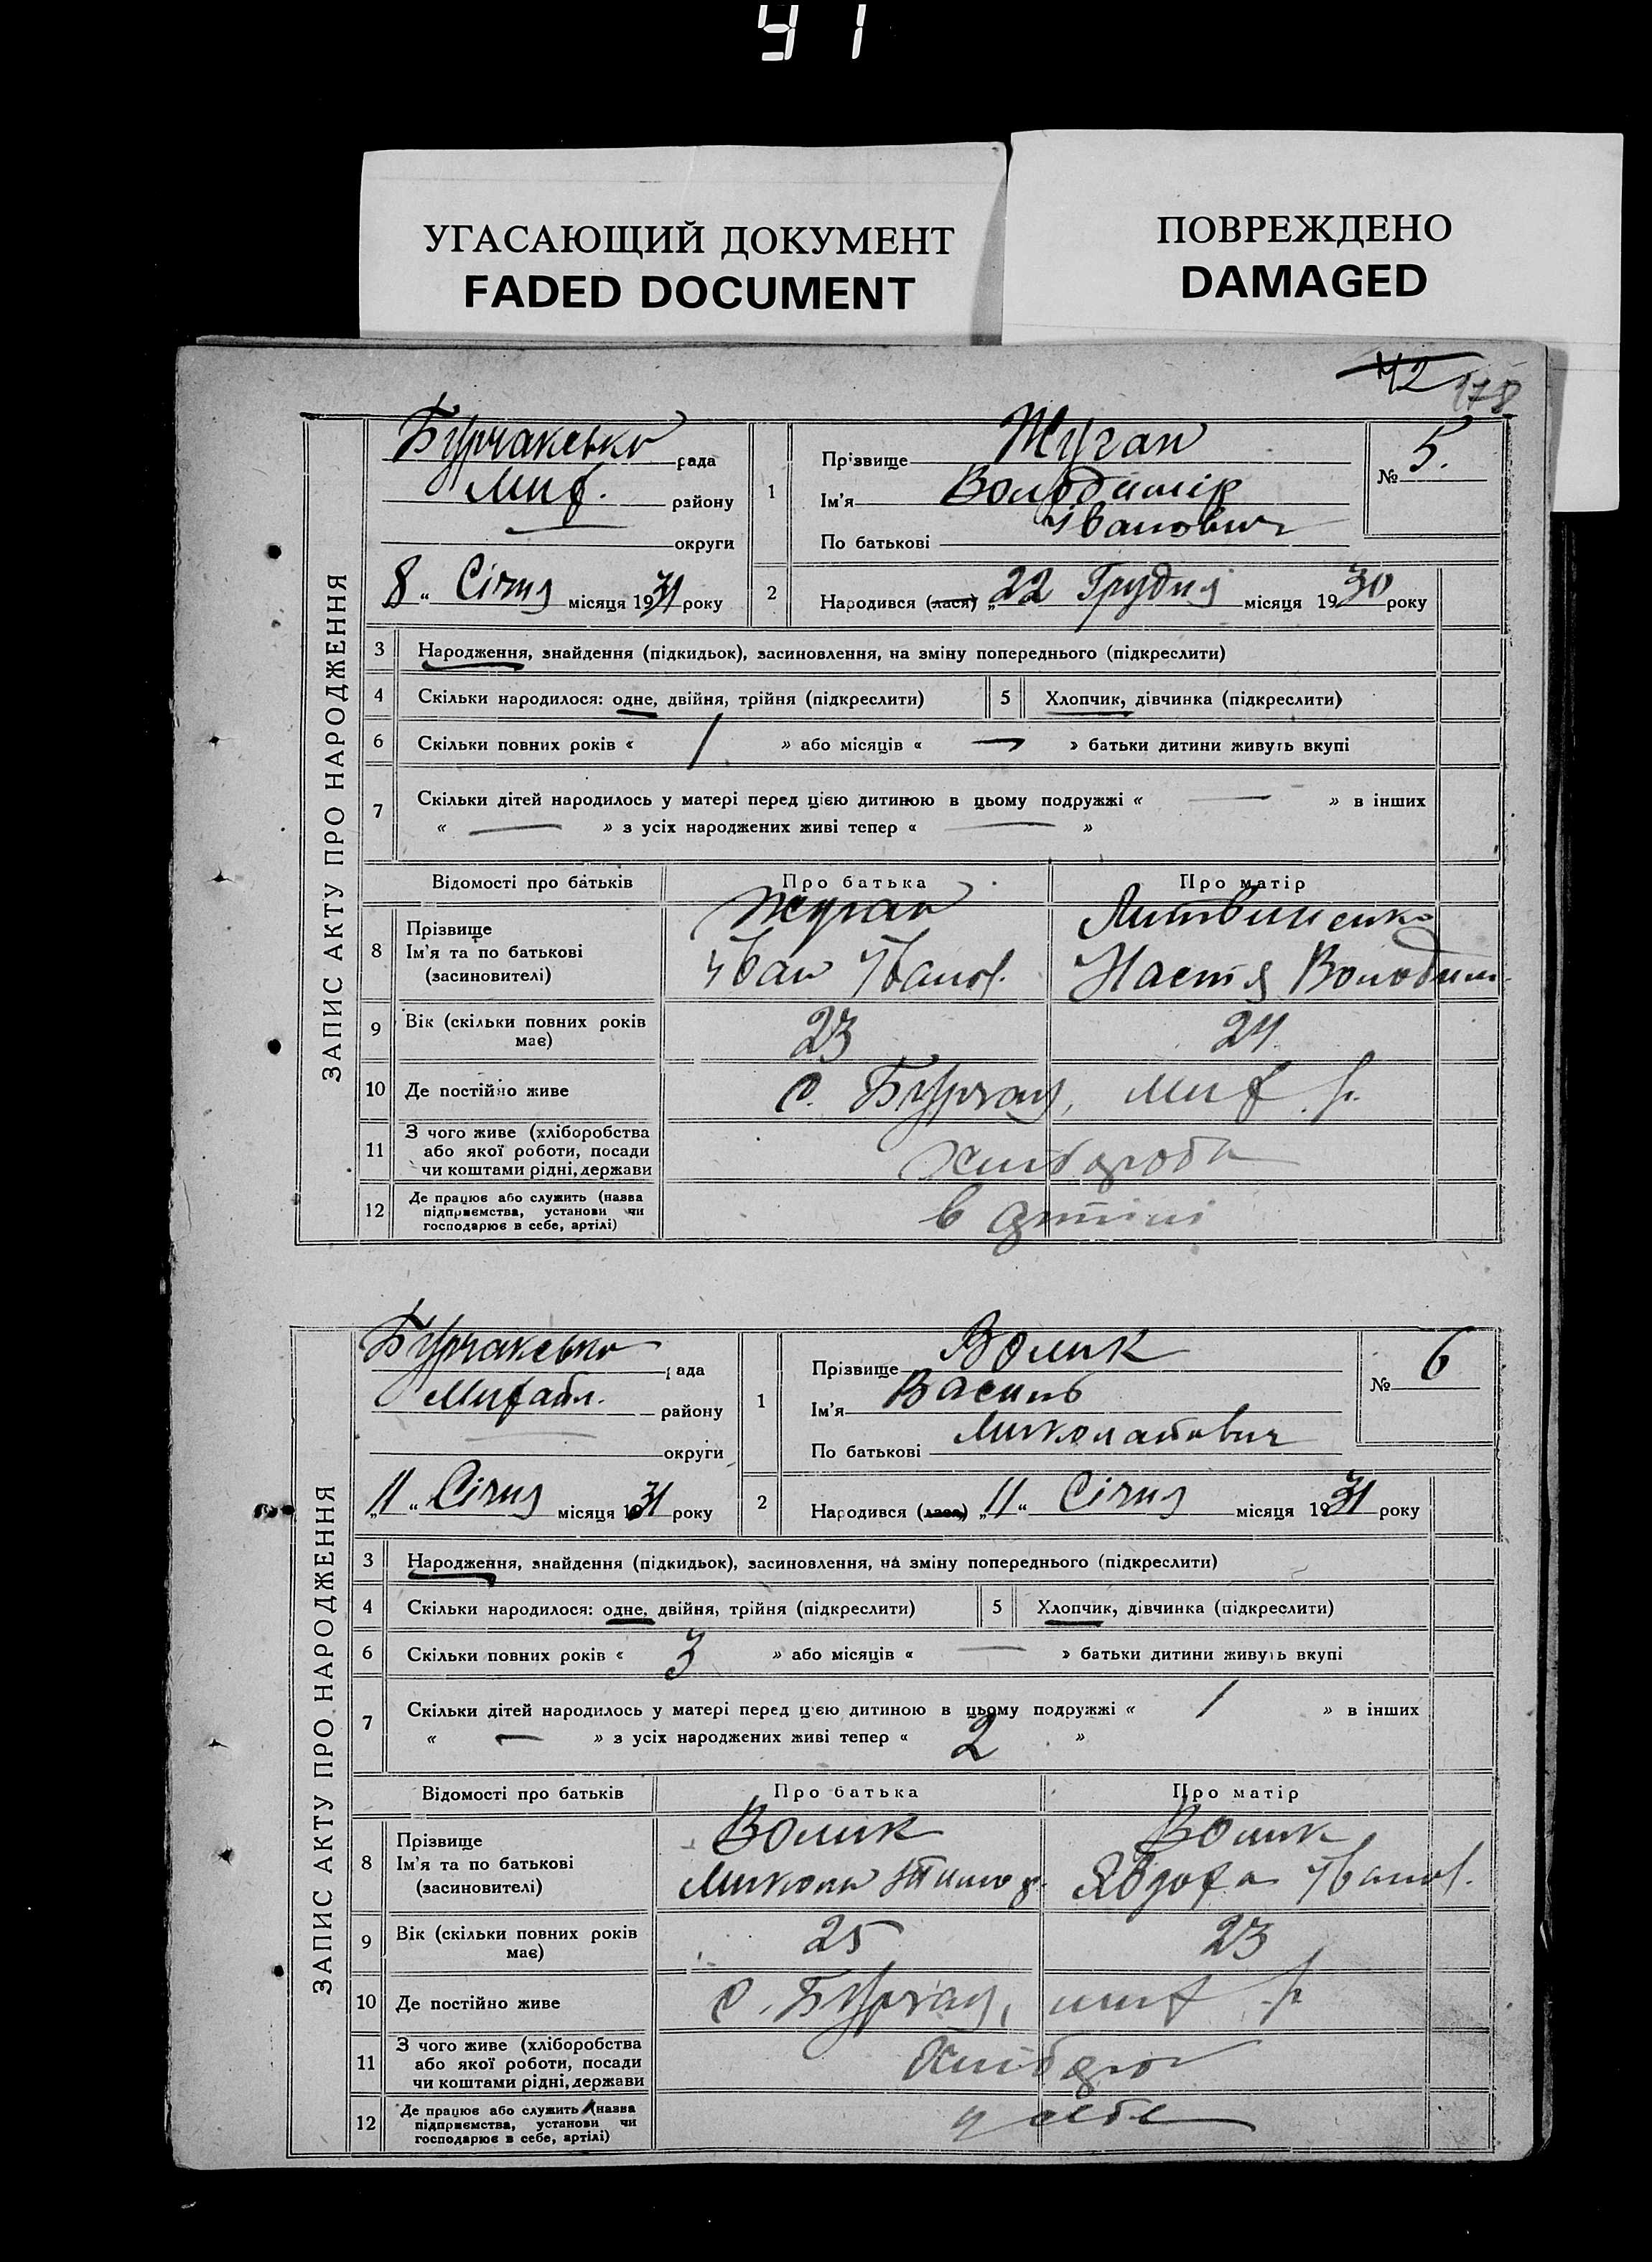 41
УГАСАЮЩИЙ ДОКУМЕНТ
FADED DOCUMENT
ПОВРЕЖДЕНО
DAMAGED
42 178
ЗАПИС АКТУ ПРО НАРОДЖЕННЯ
Бурчакська рада
Мих. району
округи
8 " Січня місяця 1931 року
1
Прізвище Жуган
Ім'я Володимір
По батькові Іванович
№ 5.
2 Народився (лася) „22 Грудня місяця 1930 року
3 Народження, знайдення (підкидьок), засиновлення, на зміну попереднього (підкреслити)
4 Скільки народилося: одне, двійня, трійня (підкреслити) 5 Хлопчик, дівчинка (підкреслити)
6 Скільки повних років « 1 » або місяців « — » батьки дитини живуть вкупі
7 Скільки дітей народилось у матері перед цією дитиною в цьому подружжі « — » в інших
« — » з усіх народжених живі тепер « — »
Відомості про батьків Про батька Про матір
8 Прізвище Жуган Литвиненко
Ім'я та по батькові Іван Іванов. Настя Володим.
(засиновителі)
9 Вік (скільки повних років має) 23 24
10 Де постійно живе с. Бурчак, мих. р.
11 З чого живе (хліборобства
або якої роботи, посади
чи коштами рідні, держави
хлібороби
12 Де працює або служить (назва
підприємства, установи чи
господарює в себе, артілі)
в артілі
ЗАПИС АКТУ ПРО НАРОДЖЕННЯ
Бурчакська рада
Михайл. району
округи
„11 " Січня місяця 1931 року
1
Прізвище Волик
Ім'я Василь
По батькові Миколайович
№ 6
2 Народився (лася) „11 " Січня місяця 1931 року
3 Народження, знайдення (підкидьок), засиновлення, на зміну попереднього (підкреслити)
4 Скільки народилося: одне, двійня, трійня (підкреслити) 5 Хлопчик, дівчинка (підкреслити)
6 Скільки повних років « 3 » або місяців « — » батьки дитини живуть вкупі
7 Скільки дітей народилось у матері перед цією дитиною в цьому подружжі « 1 » в інших
« — » з усіх народжених живі тепер « 2 »
Відомості про батьків Про батька Про матір
8 Прізвище Волик Волик
Ім'я та по батькові Микола Явдоха Іванов.
(засиновителі)
9 Вік (скільки повних років має) 25 23
10 Де постійно живе с. Бурчак, мих. р.
11 З чого живе (хліборобства
або якої роботи, посади
чи коштами рідні, держави
хлібороб
12 Де працює або служить (назва
підприємства, установи чи
господарює в себе, артілі)
у себе